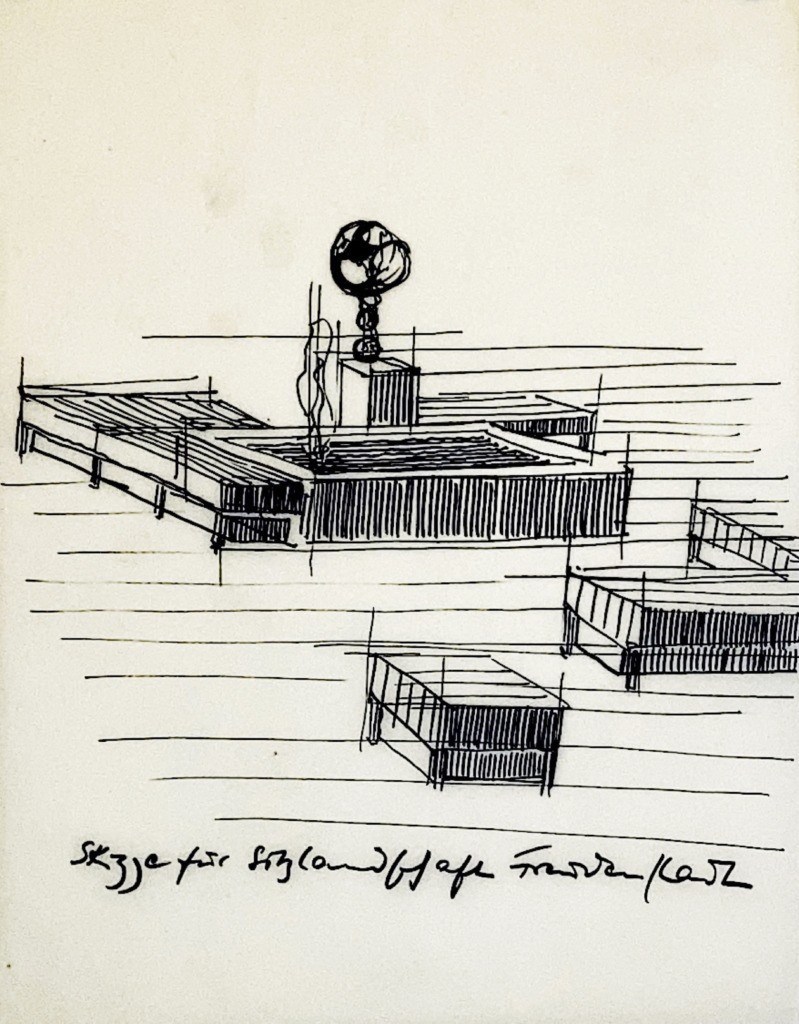 Skizze für Sitzlandschaft Freudenstadt